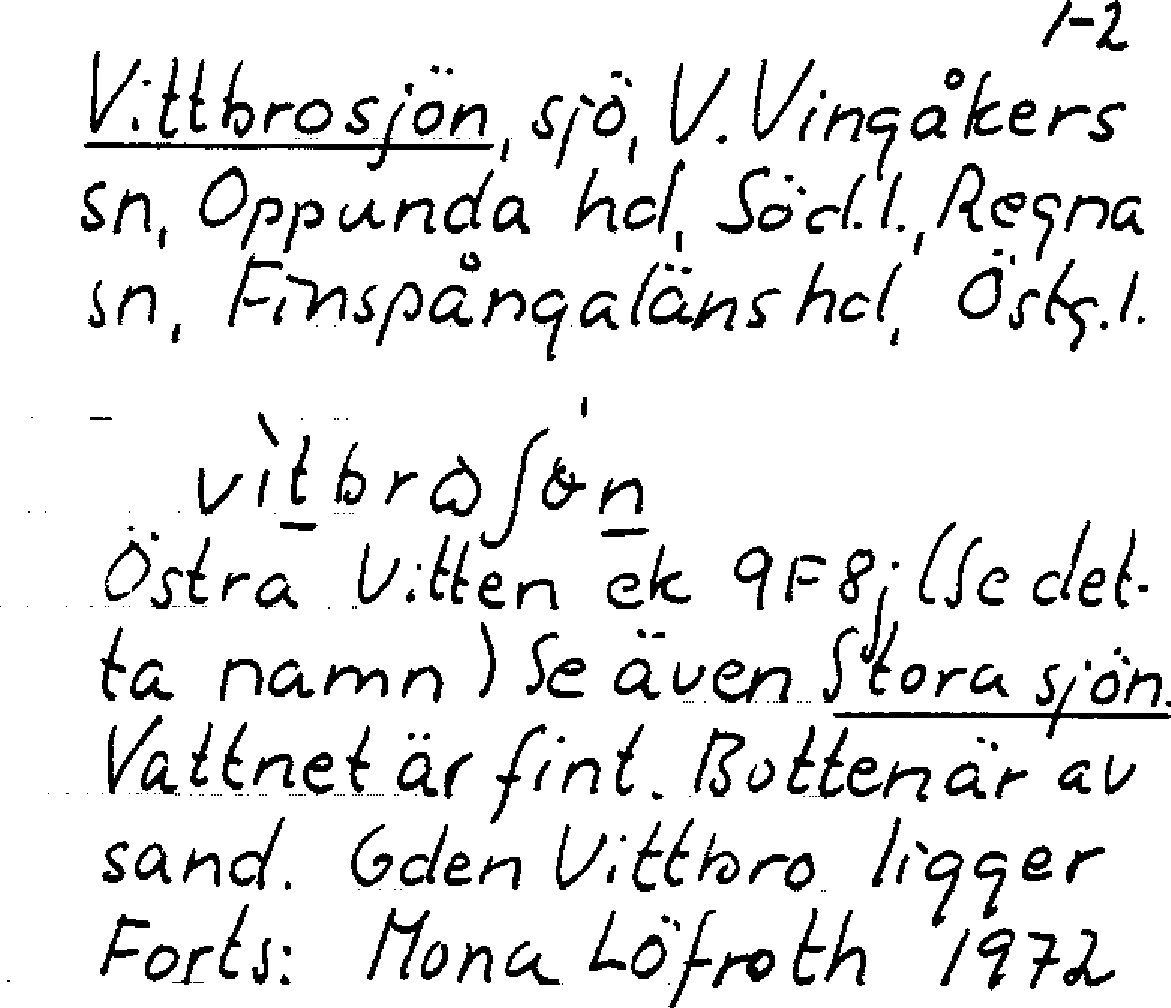 1-2
Vittbrosjön, sjö, V. Vingåkers
sn, Oppunda hd, Söd.l., Regna
sn, Finspångaläns hd, Östg.l.
Östra Vitten ek 9F8j (Se det-
ta namn) Se även Stora sjön.
Vattnet är fint. Botten är av
sand. Gden Vittbro ligger
Forts: Mona Löfroth 1972